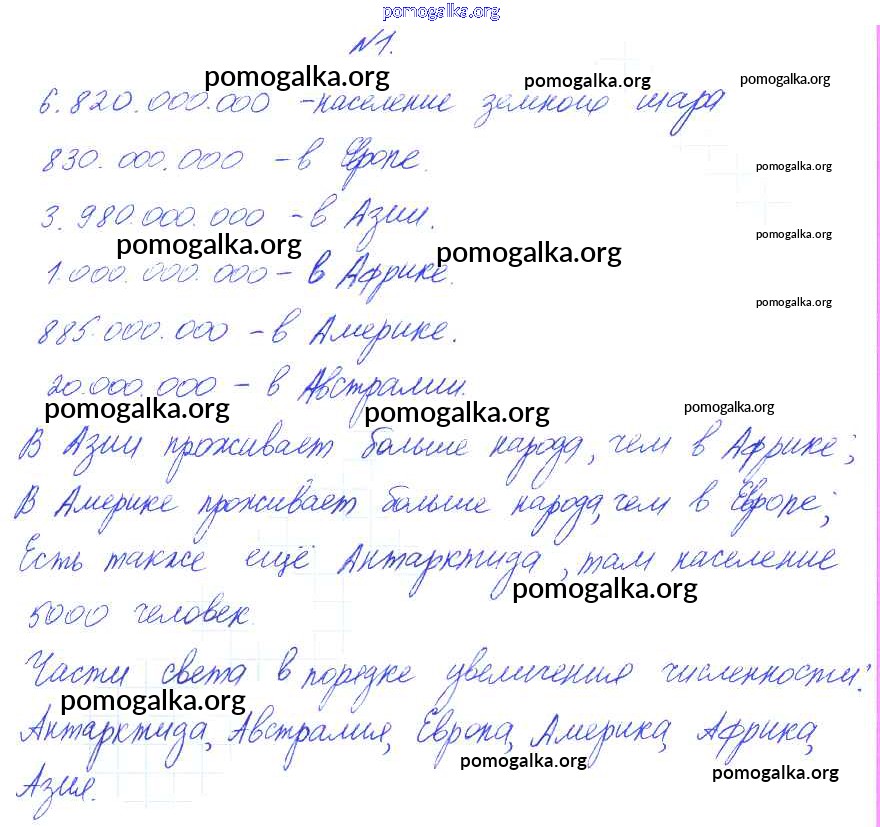 pomogalka.org
№1.
pomogalka.org pomogalka.org pomogalka.org
6.820.000.000 - население земного шара
830.000.000 - в Европе.
pomogalka.org
3.980.000.000 - в Азии.
pomogalka.org pomogalka.org pomogalka.org
1.000.000.000 - в Африке.
pomogalka.org
885.000.000 - в Америке.
20.000.000 - в Австралии.
pomogalka.org pomogalka.org pomogalka.org
В Азии проживает больше народа, чем в Африке;
В Америке проживает больше народа, чем в Европе;
Есть также ещё Антарктида, там население
pomogalka.org
5000 человек.
Части света в порядке увеличения численности:
pomogalka.org
Антарктида, Австралия, Европа, Америка, Африка,
pomogalka.org pomogalka.org
Азия.